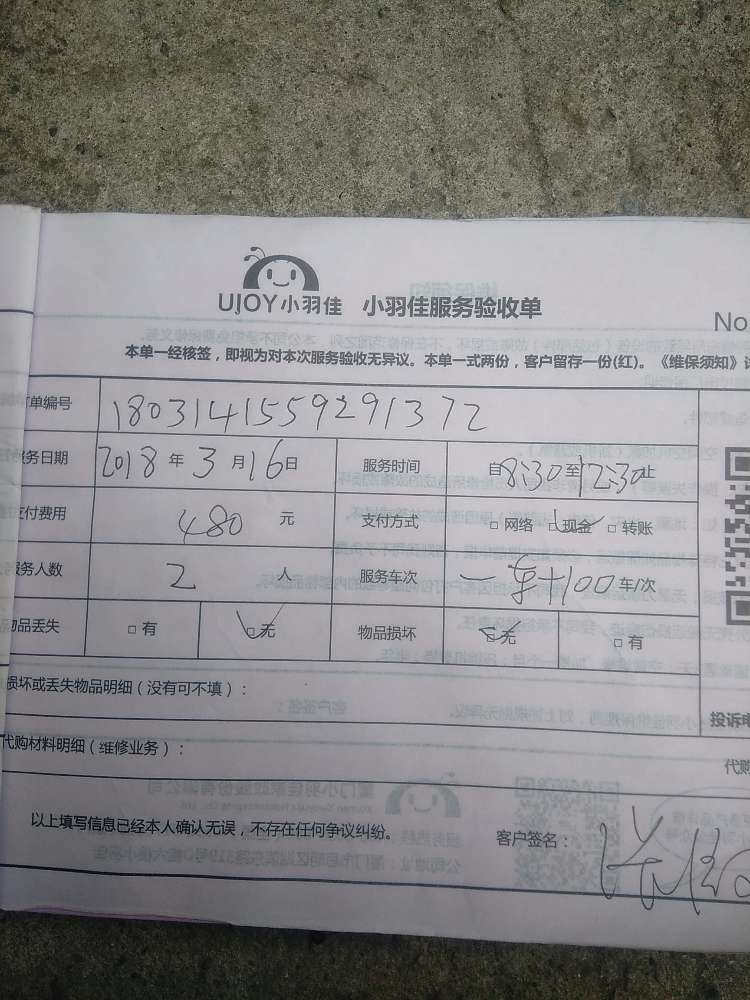 UJOY小羽佳 小羽佳服务验收单
No
本单一经核签，即视为对本次服务验收无异议。本单一式两份，客户留存一份(红)。《维保须知》
单编号 1803141559291372
务日期 2018年3月16日 服务时间 自8:30至12:30止
支付费用 480元 支付方式 □网络 □现金 □转账
服务人数 2人 服务车次 一车+100车/次
物品丢失 □有 □无 物品损坏 □无 □有
损坏或丢失物品明细（没有可不填）：
投诉电
代购材料明细（维修业务）：
代购
以上填写信息已经本人确认无误，不存在任何争议纠纷。 客户签名：